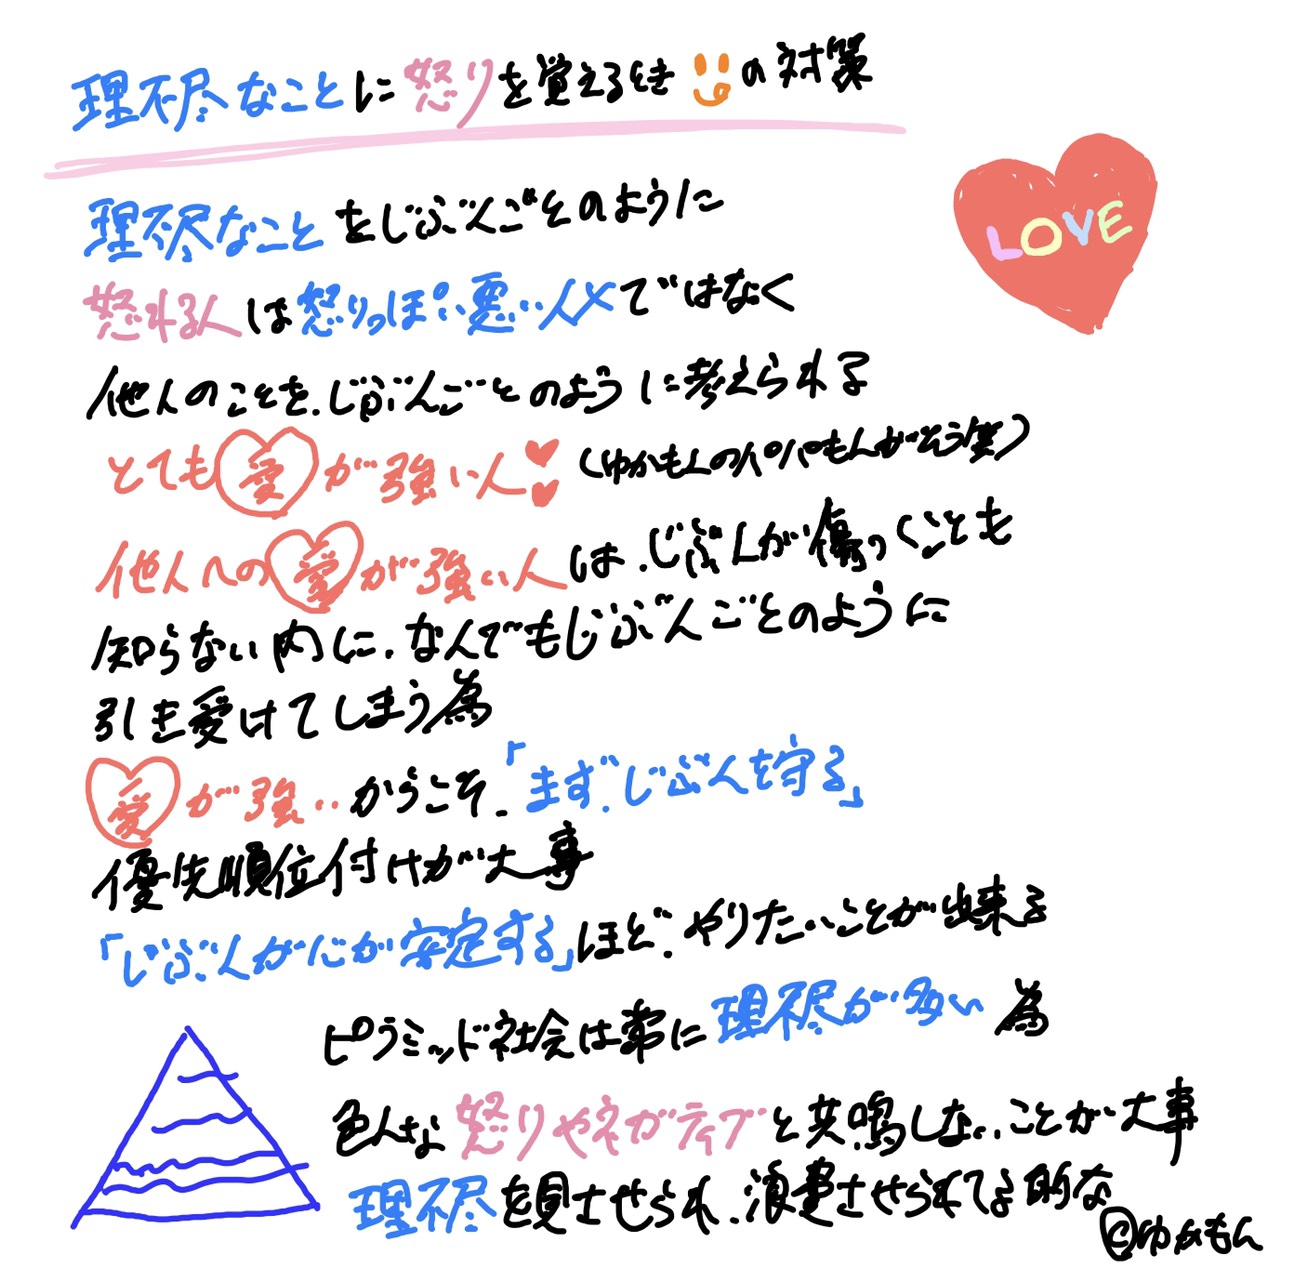 理不尽なことに怒りを覚えるときの対策
LOVE
理不尽なことをじぶんごとのように
怒れる人は怒りっぽい悪い人×ではなく
他人のことを、じぶんごとのように考えられる
とても愛が強い人(ゆかもんのパパもんがそう笑)
他人への愛が強い人は、じぶんが傷つくことも
知らない内に、なんでもじぶんごとのように
引き受けてしまう為
愛が強いからこそ、「まず、じぶんを守る」
優先順位付けが大事
「じぶんが心が安定する」ほど、やりたいことが出来る
ピラミッド社会は常に理不尽が多い為
色んな怒りやネガティブと共鳴しないことが大事
理不尽を見させられ、浪費させられてる的な
©ゆかもん